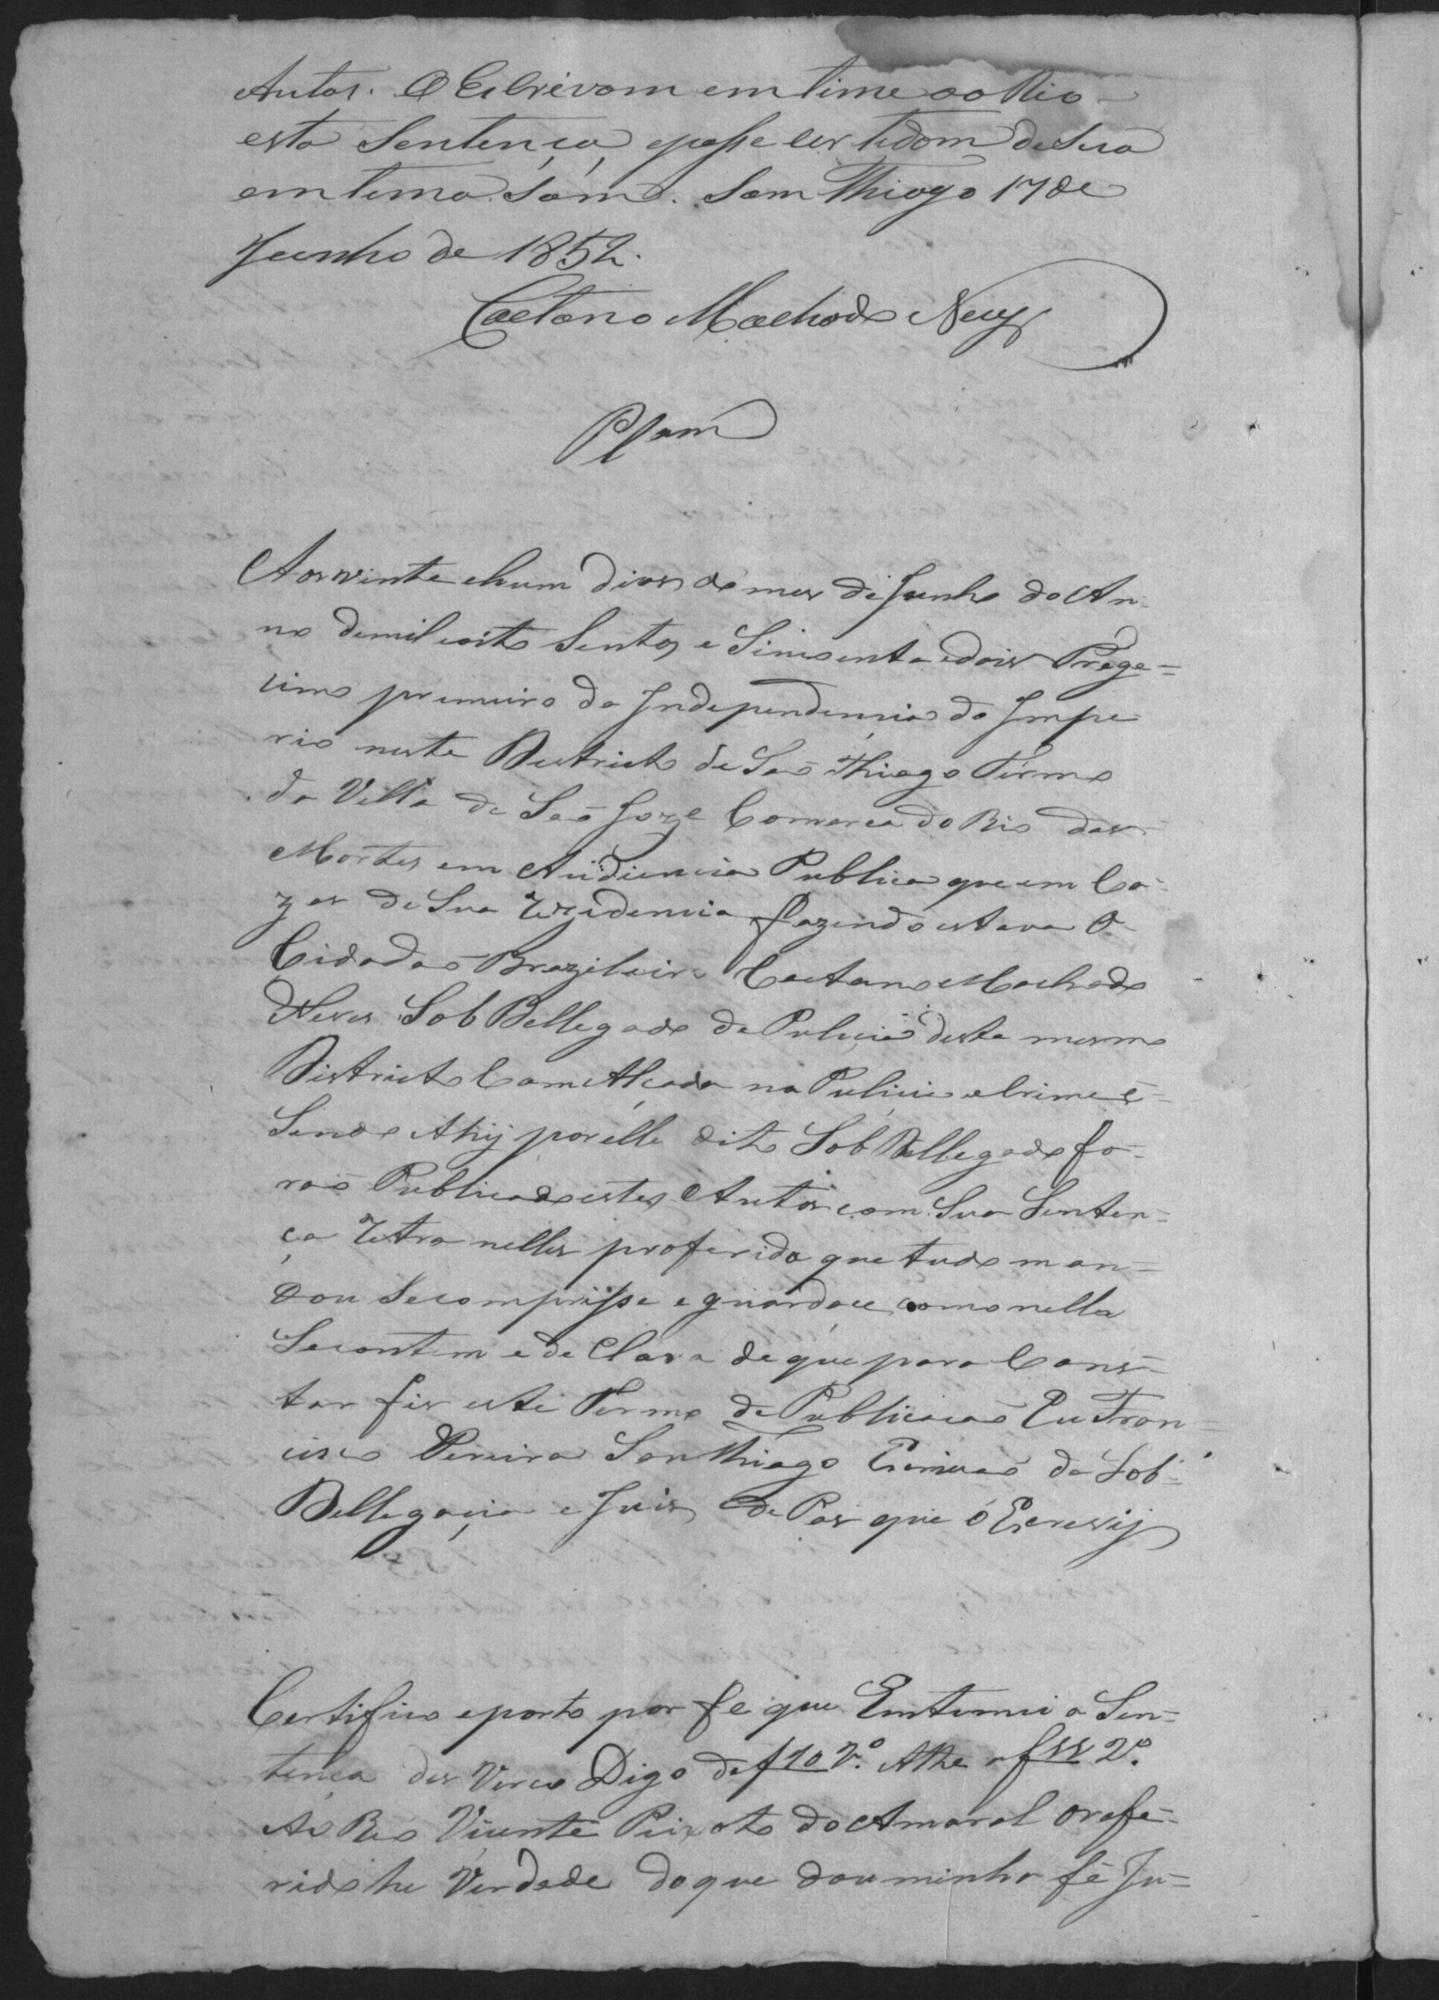 Autos. O Escrivam emtime ao Rio
esta Sentença, epasse certidom desua
emtimasám. Sam Thiago 17 de
Junho de 1852.
Caetano Machado Neves
Pſam
Aos vinte ehum dias do mes de Junho do An-
no demil eoito Sentos e Sincoenta edois Trige=
cimo premeiro da Independencia do Impe
rio neste Destricto de São Thiago Termo
da Villa de São Joze Comarca do Rio das
Mortes em Audiencia Publica que em Ca-
zas de Sua Rezidencia fazendo estava O
Cidadão Brazileiro Caetano Machado
Neves Sob Dellegado de Pulicia deste mesmo
Districto Com Alçada no Pulicial e Crime e=
Sendo Ahy por elle dito Sob Dellegado fo-
rão Publicados estes Autos com Sua Senten=
ça Retra nelles proferida que tudo man=
dou Secomprisse e guardace, como nella
Secontem e de Clara de que para Cons=
tar fis este Termo de Publicação Eu Fran=
cisco Pereira San Thiago Escrivão da Sob=
Dellegacia e Juis de Pas que o Escrevy
Certifico eporto por fe que Emtemei a Sen=
tença do Verco Digo de f 10 vº. Athe a f 11 vº.
Ao Reo Vicente Peixoto do Amaral orefe=
rido he Verdade doque dou minha fé Ju=